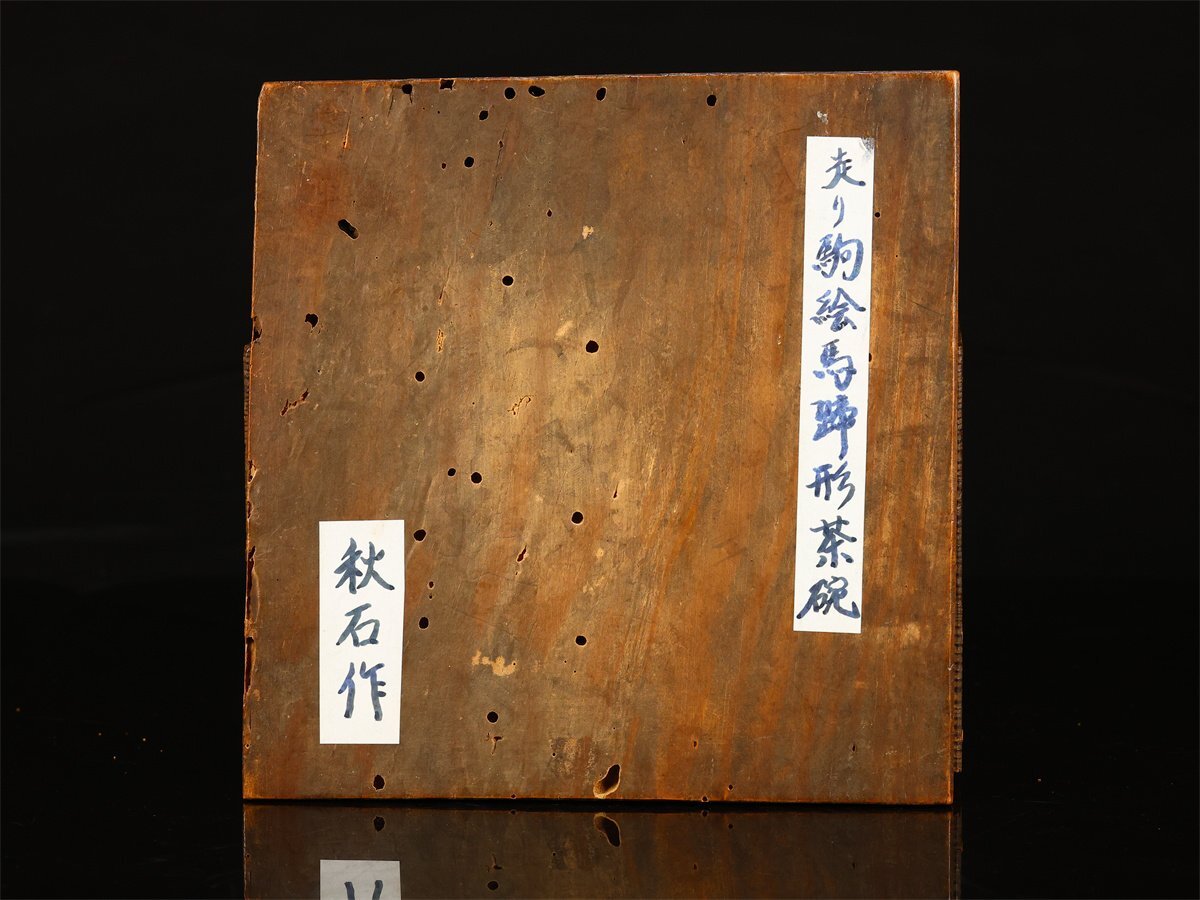 走り駒絵馬蹄形茶碗
秋石作